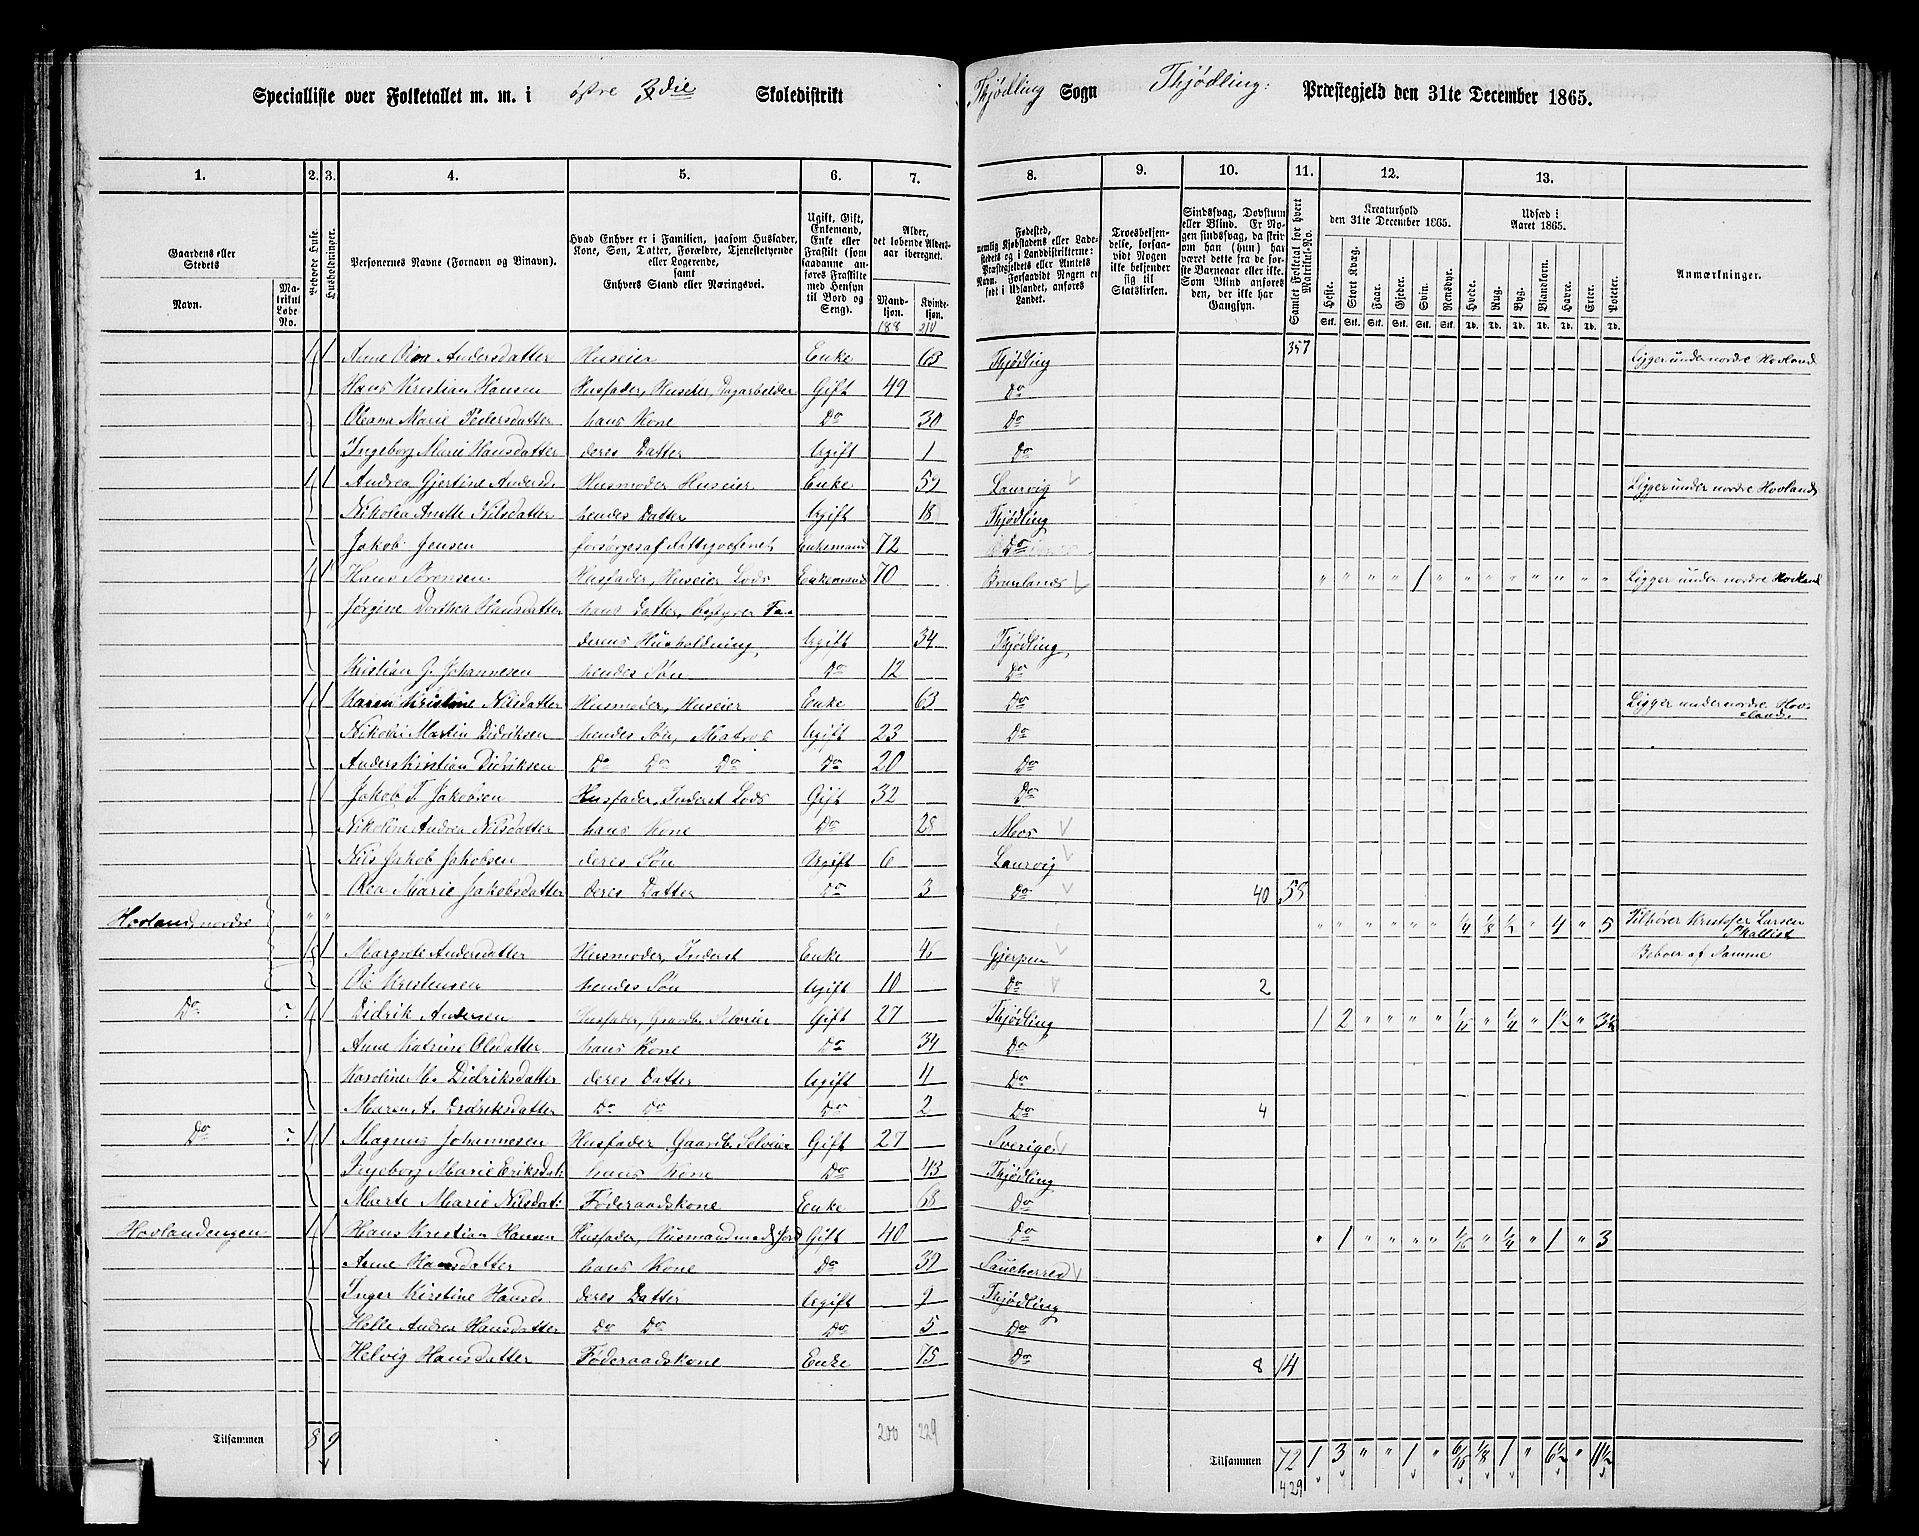 Specialliste over Folketallet m. m. i østre 3die Skoledistrikt Thjødling Sogn Thjødling: Præstegjeld den 31te December 1865.
1. 2. 3. 4. 5. 6. 7. 8. 9. 10. 11. 12. 13.
Gaardens eller Stedets
Navn.
Matrikul Løbe-No.
Beboede Huse.
Husholdninger.
Personernes Navne (Fornavn og Binavn).
Hvad Enhver er i Familien, saasom Husfader, Kone, Søn, Datter, Forældre, Tjenestetyende eller Logerende, samt Enhvers Stand eller Næringsvei.
Ugift, Gift, Enkemand, Enke eller Fraskilt (som saadanne anføres Fraskilte med Hensyn til Bord og Seng).
Alder, det løbende Aldersaar iberegnet.
Mandkjøn. 188
Kvindekjøn. 210
Fødested, nemlig Kjøbstadens eller Ladestedets og i Landdistrikterne: Præstegjeldets eller Annexets Navn. Forsaavidt Nogen er født i Udlandet, anføres Landet.
Troesbekjendelse, forsaavidt Nogen ikke bekjender sig til Statskirken.
Sindssvag, Døvstum eller Blind. Er Nogen sindssvag, da skrives om han (hun) har været dette fra de første Barneaar eller ikke. Som Blind anføres den, der ikke har Gangsyn.
Samlet Folketal for hvert Matrikul-No.
Kreaturhold den 31te December 1865.
Heste. Stort Kvæg. Faar. Gjeder. Svin. Rensdyr.
Udsæd i Aaret 1865.
Hvede. Rug. Byg. Blandkorn. Havre. Erter. Poteter.
Anmærkninger.
1 1 Anne Andersdatter Huseier Enke 63 Thjødling 357 Ligger under nordre Hovland
Hans Kristian Hansen Husfader, Huseier, Dagarbeider Gift 49 Do
Oleana Marie Pedersdatter hans Kone Do 30 Do
Ingeborg Marie Hansdatter deres Datter Ugift 1 Do
1 1 Andrea Gjertine Andersd. Husmoder Huseier Enke 52 Laurvig Ligger under nordre Hovland
Nikolea Anette Nilsdatter hendes Datter Ugift 18 Thjødling
Jakob Jensen forsørges af Fattigvæsenet Enkemand 72 Do
1 1 Hans Sørensen Husfader, Huseier Lods Enkemand 70 Brunlanes " " " " 1 " " " " " " " " Ligger under nordre Hovland
Jørgine Dorthea Hansdatter hans Datter, bestyrer Fa-
derens Husholdning, Ugift 34 Thjødling
Kristian G. Johannesen hendes Søn Do 12 Do
1 1 Karen Kristine Nilsdatter Husmoder, Huseier Enke 63 Do Ligger under nordre Hov-
lande
Nikolai Martin Didriksen hendes Søn, Matros Ugift 23 Do
Anders Kristian Didriksen Do Do Do Do 20 Do
1 Jakob T. Jakobsen Husfader, Inderst Lods Gift 32 Do
Nikoline Andrea Nilsdatter hans Kone Do 28 Mos
Nils Jakob Jakobsen deres Søn Ugift 6 Laurvig
Olea Marie Jakobsdatter deres Datter Do 3 Do 40 55
Hovland, nordre " " " " " " " " 1/4 1/8 1/2 " 4 " 5 Tilhører Kristofer Larsen
Skallist
Margrete Andersdatter Husmoder, Inderst Enke 46 Gjerpen Beboer af Samme
Ole Kristensen hendes Søn Ugift 10 Do 2
Do 1 1 Didrik Andersen Husfader, Gaardb. Selveier Gift 27 Thjødling 1 2 " " " " " 1/4 " 1½ " 3½
Anne Katrine Olsdatter hans Kone Do 34 Do
Karoline M. Didriksdatter deres Datter Ugift 4 Do
Maren A. Didriksdatter Do Do Do 2 Do 4
Do 1 1 Magnus Johannesen Husfader Gaardb. Selveier Gift 27 Sverige
Ingeborg Marie Eriksdat: hans Kone Do 43 Thjødling
Marte Marie Nilsdat: Føderaadskone Enke 68 Do
Hovlandengen 1 1 Hans Kristian Hansen Husfader, Husmand med Jord Gift 40 Do " 1 " " " " 1/16 " 1/4 " 1 " 3
Anne Hansdatter hans Kone Do 39 Saucherred
Inger Kirstine Hansd. deres Datter Ugift 9 Thjødling
Helle Andrea Hansdatter Do Do Do 5 Do
Helvig Hansdatter Føderaadskone Enke 75 Do 8 14
Tilsammen 8 9 200 229 Tilsammen 72 1 3 " " 1 " 6/16 1/8 1 " 6½ " 11½
429